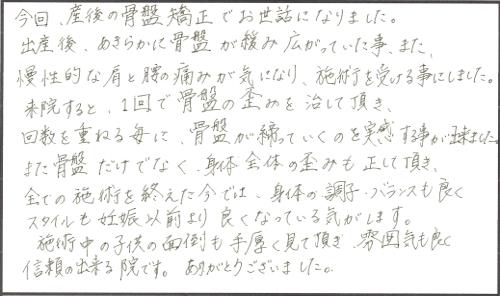 今回、産後の骨盤矯正でお世話になりました。
出産後、あきらかに骨盤が緩み広がっていた事、また、
慢性的な肩と腰の痛みが気になり、施術を受ける事にしました。
来院すると、1回で骨盤の歪みを治して頂き、
回数を重ねる毎に、骨盤が締っていくのを実感する事が出来ました。
また骨盤だけでなく、身体全体の歪みも正して頂き、
全ての施術を終えた今では、身体の調子・バランスも良く
スタイルも妊娠以前より良くなっている気がします。
施術中の子供の面倒も手厚く見て頂き、雰囲気も良く
信頼の出来る院です。ありがとうございました。